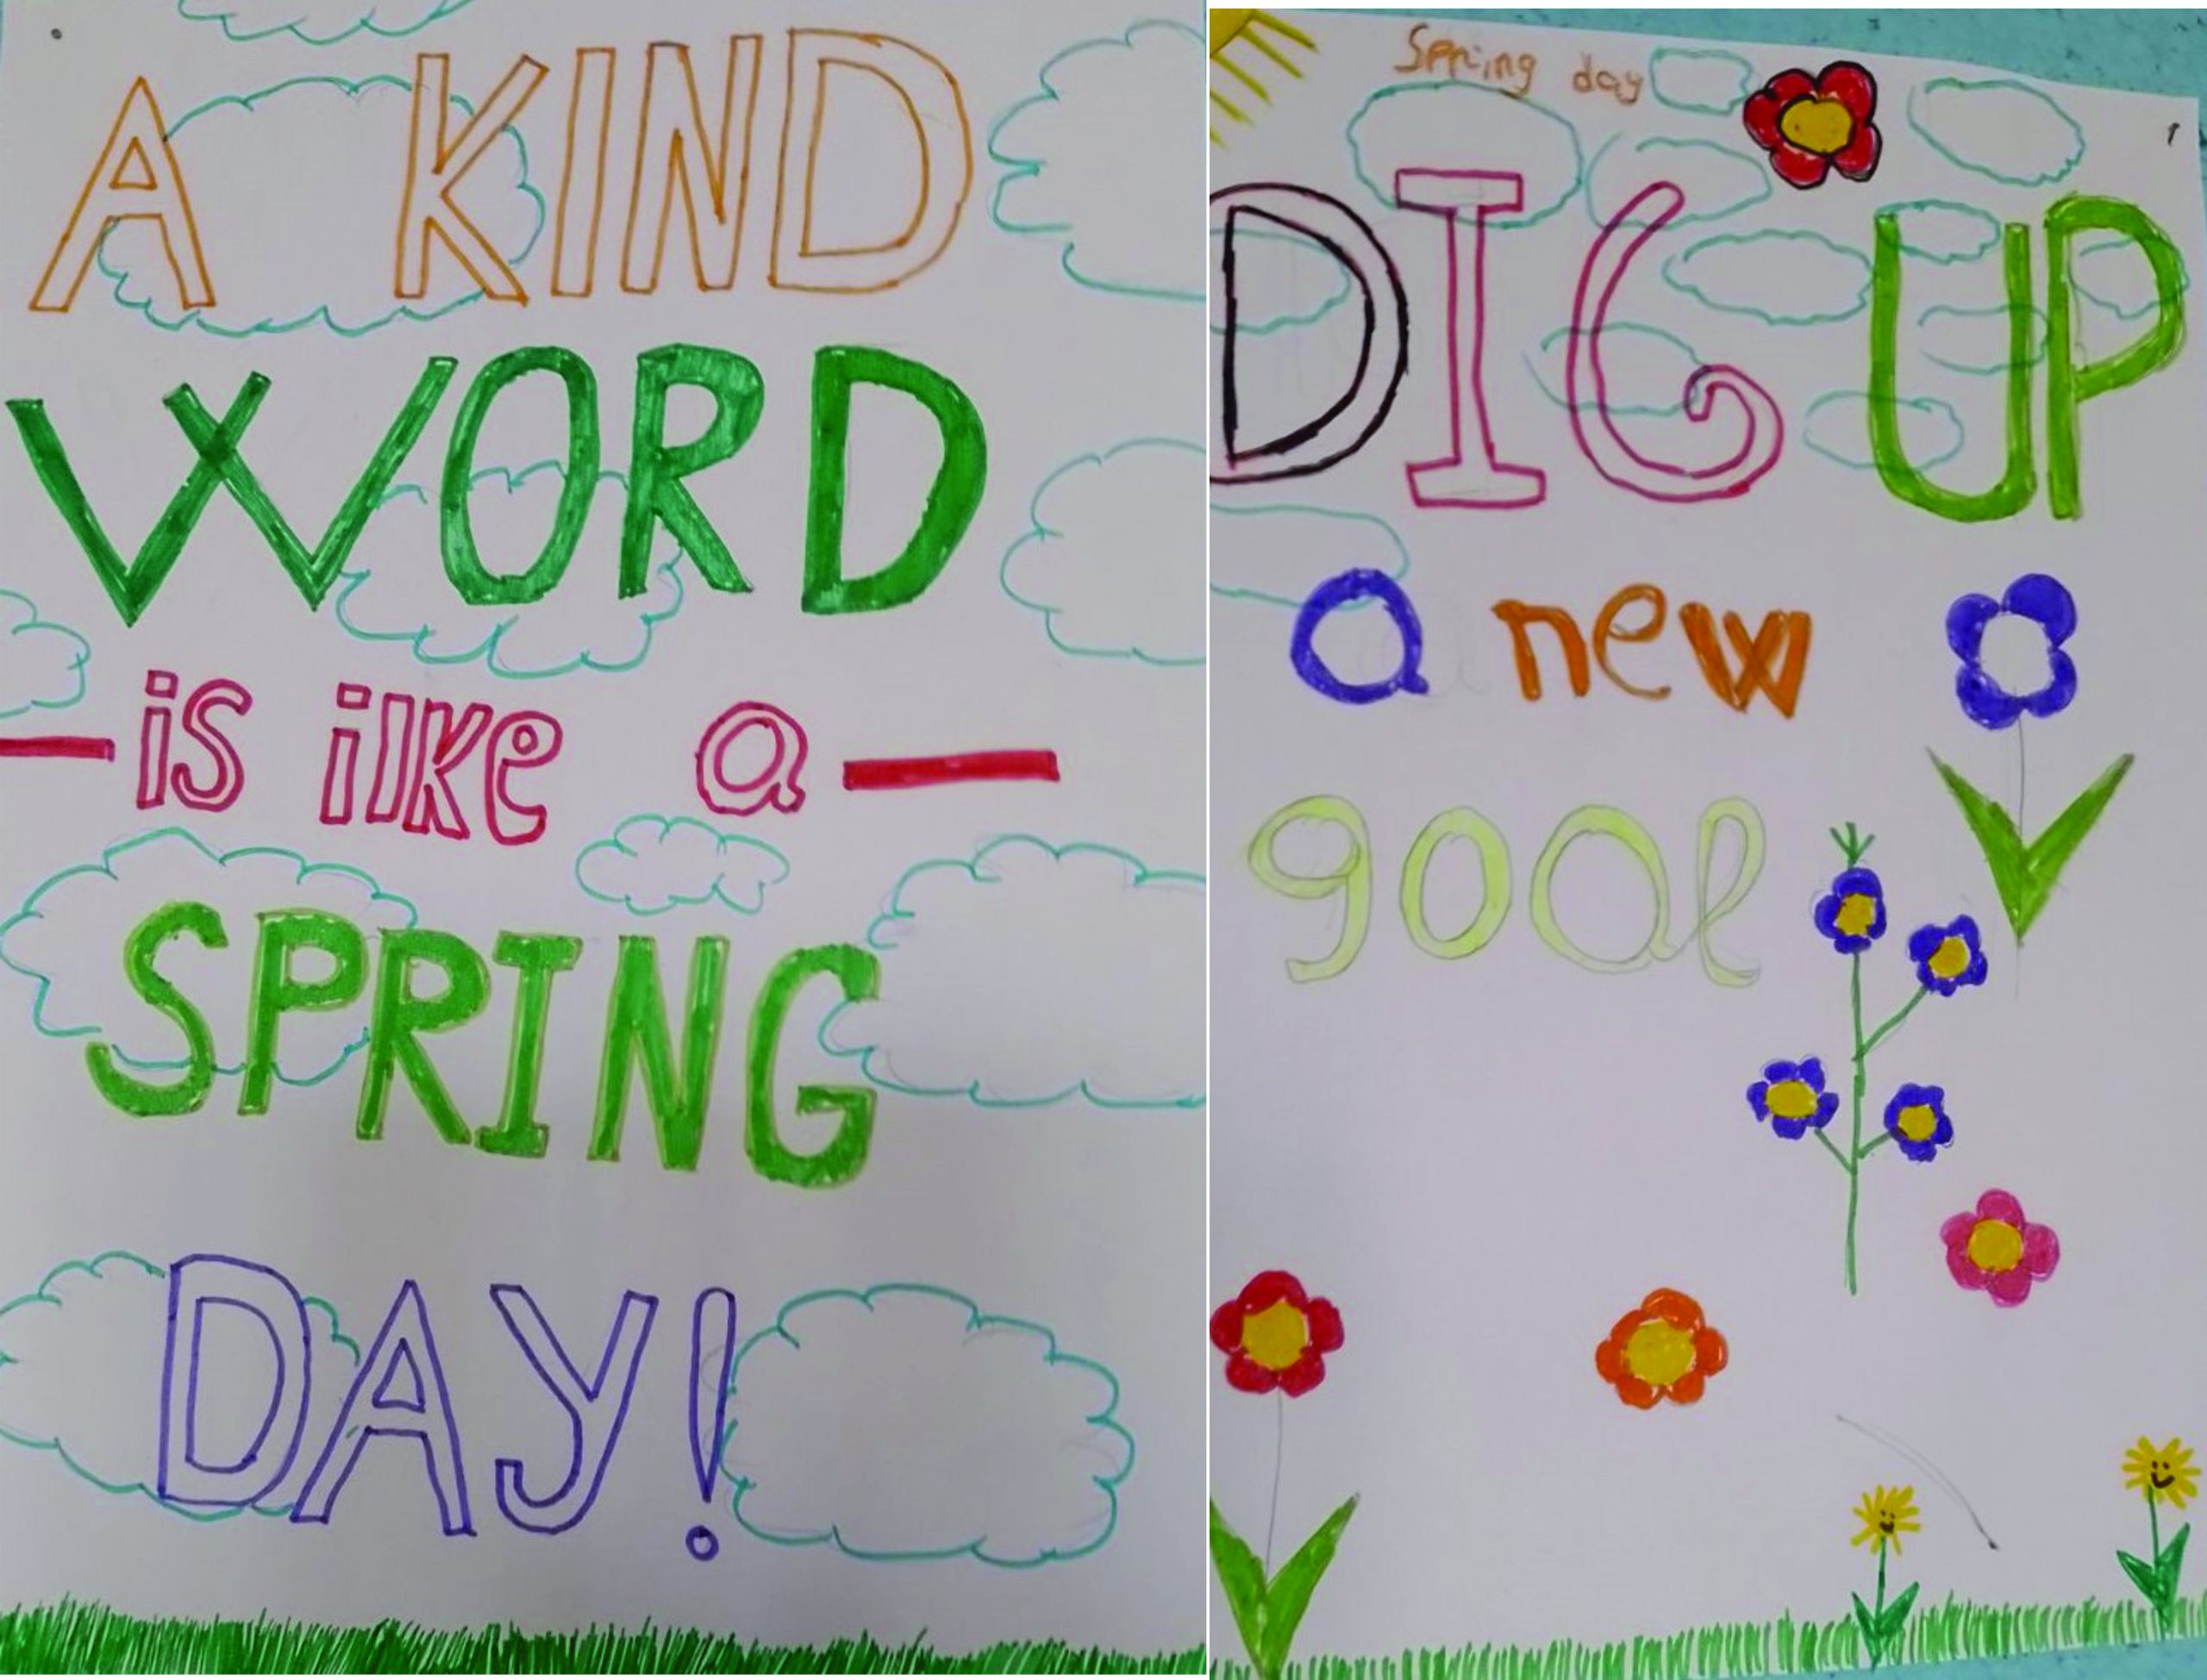 A KIND
WORD
— is ilke a —
SPRING
DAY!
Spring day
DIG UP
a new
goal